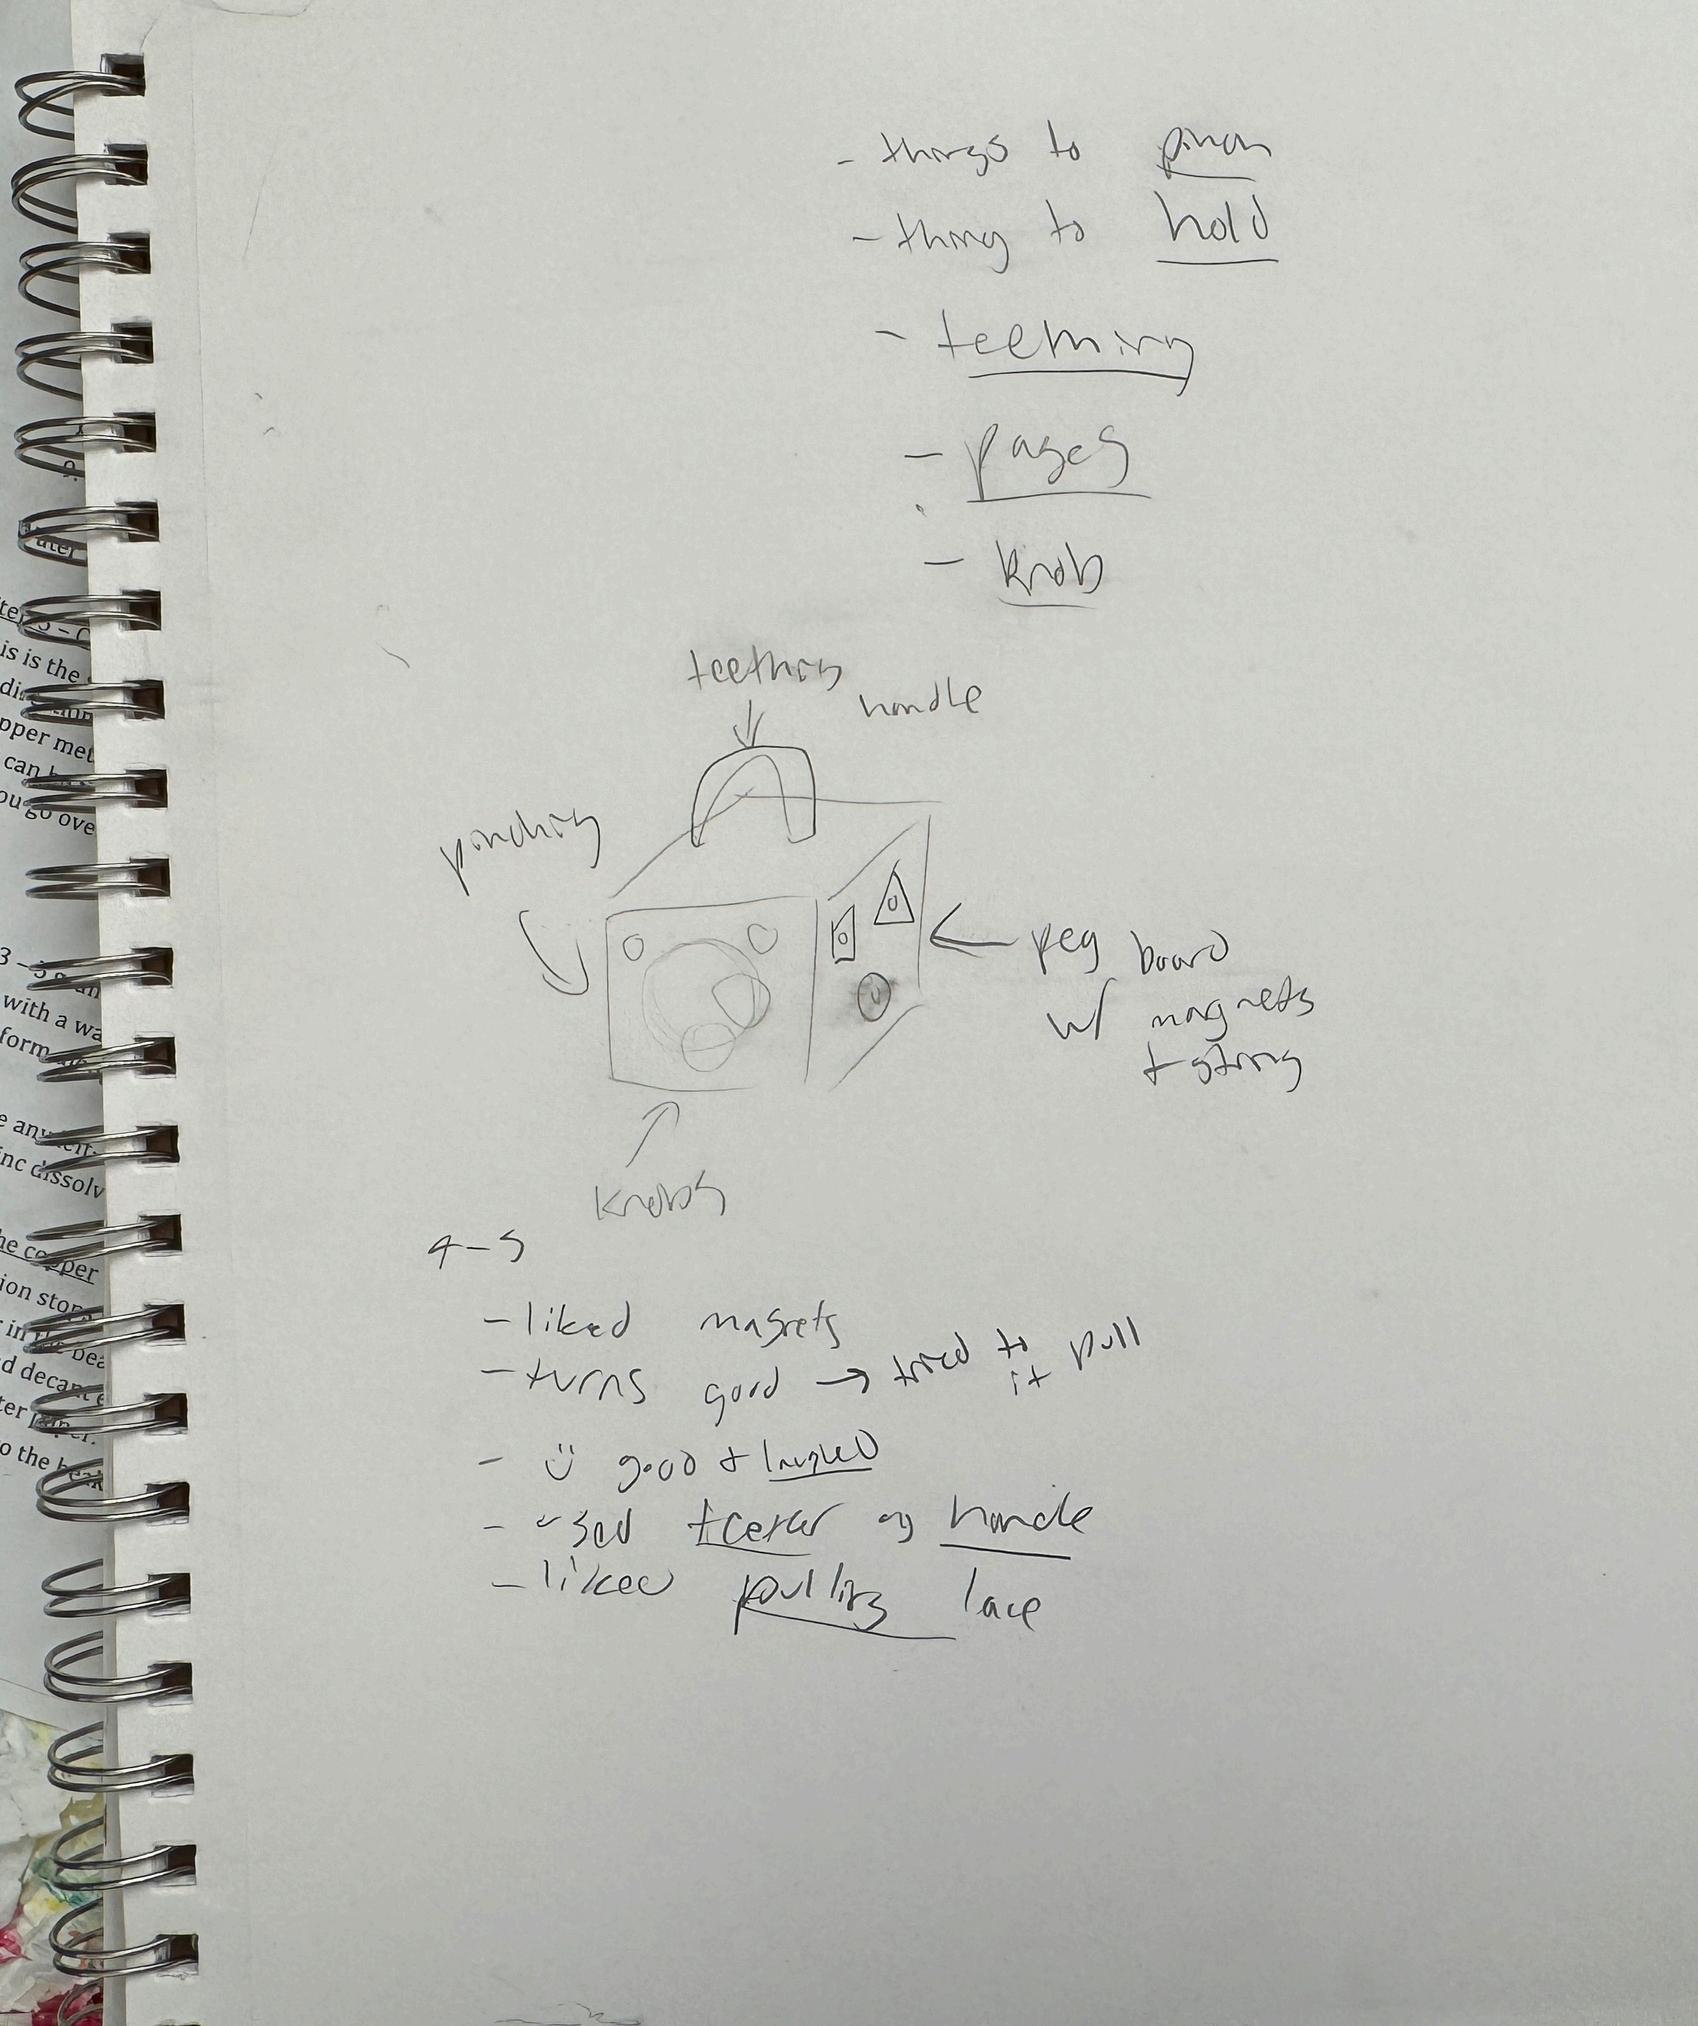 - things to pinch
- thing to hold
- teething
- pages
- knob
teething
handle
pinching
peg board
w/ magnets
+ string
knobs
4-5
- liked magnets
- turns good → tried to pull
it
- ☺ good + laughed
- used teether as handle
- liked pulling lace
ater
is is the
pper met
can
ou go over
with a wa
form
e any
inc dissolv
he copper
ion stop
d decant
o the